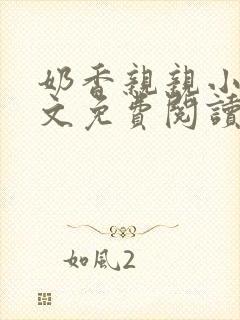 奶香親親小
文免費閱讀
如風2